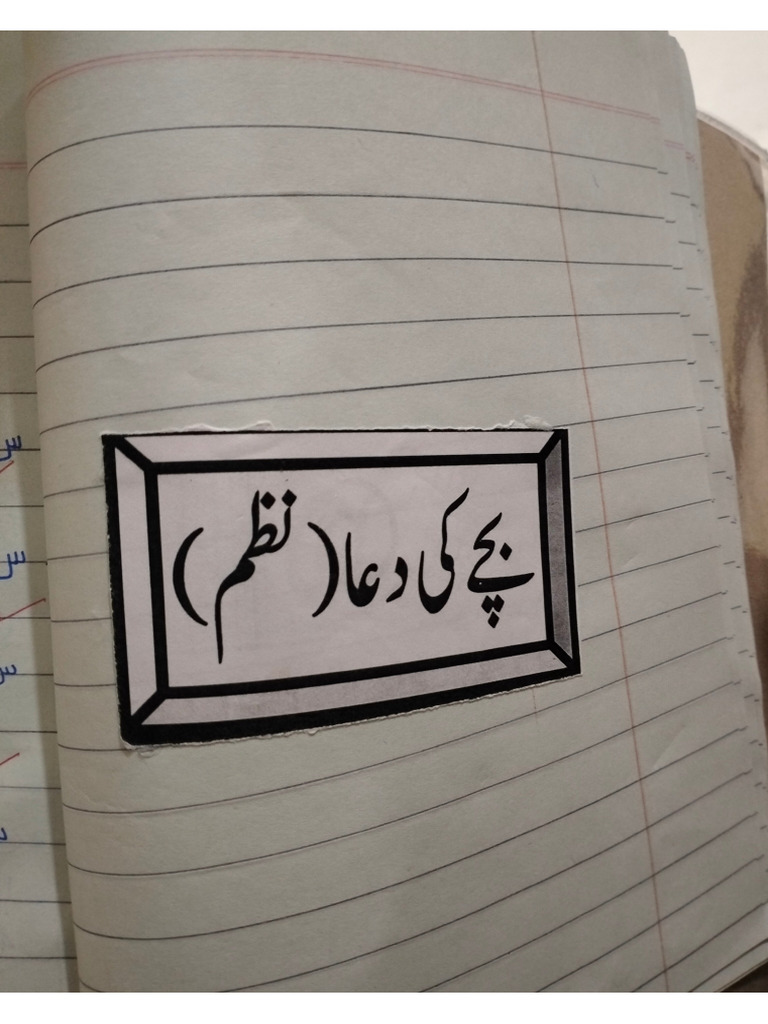 بچے کی دعا (نظم)
س
س
س